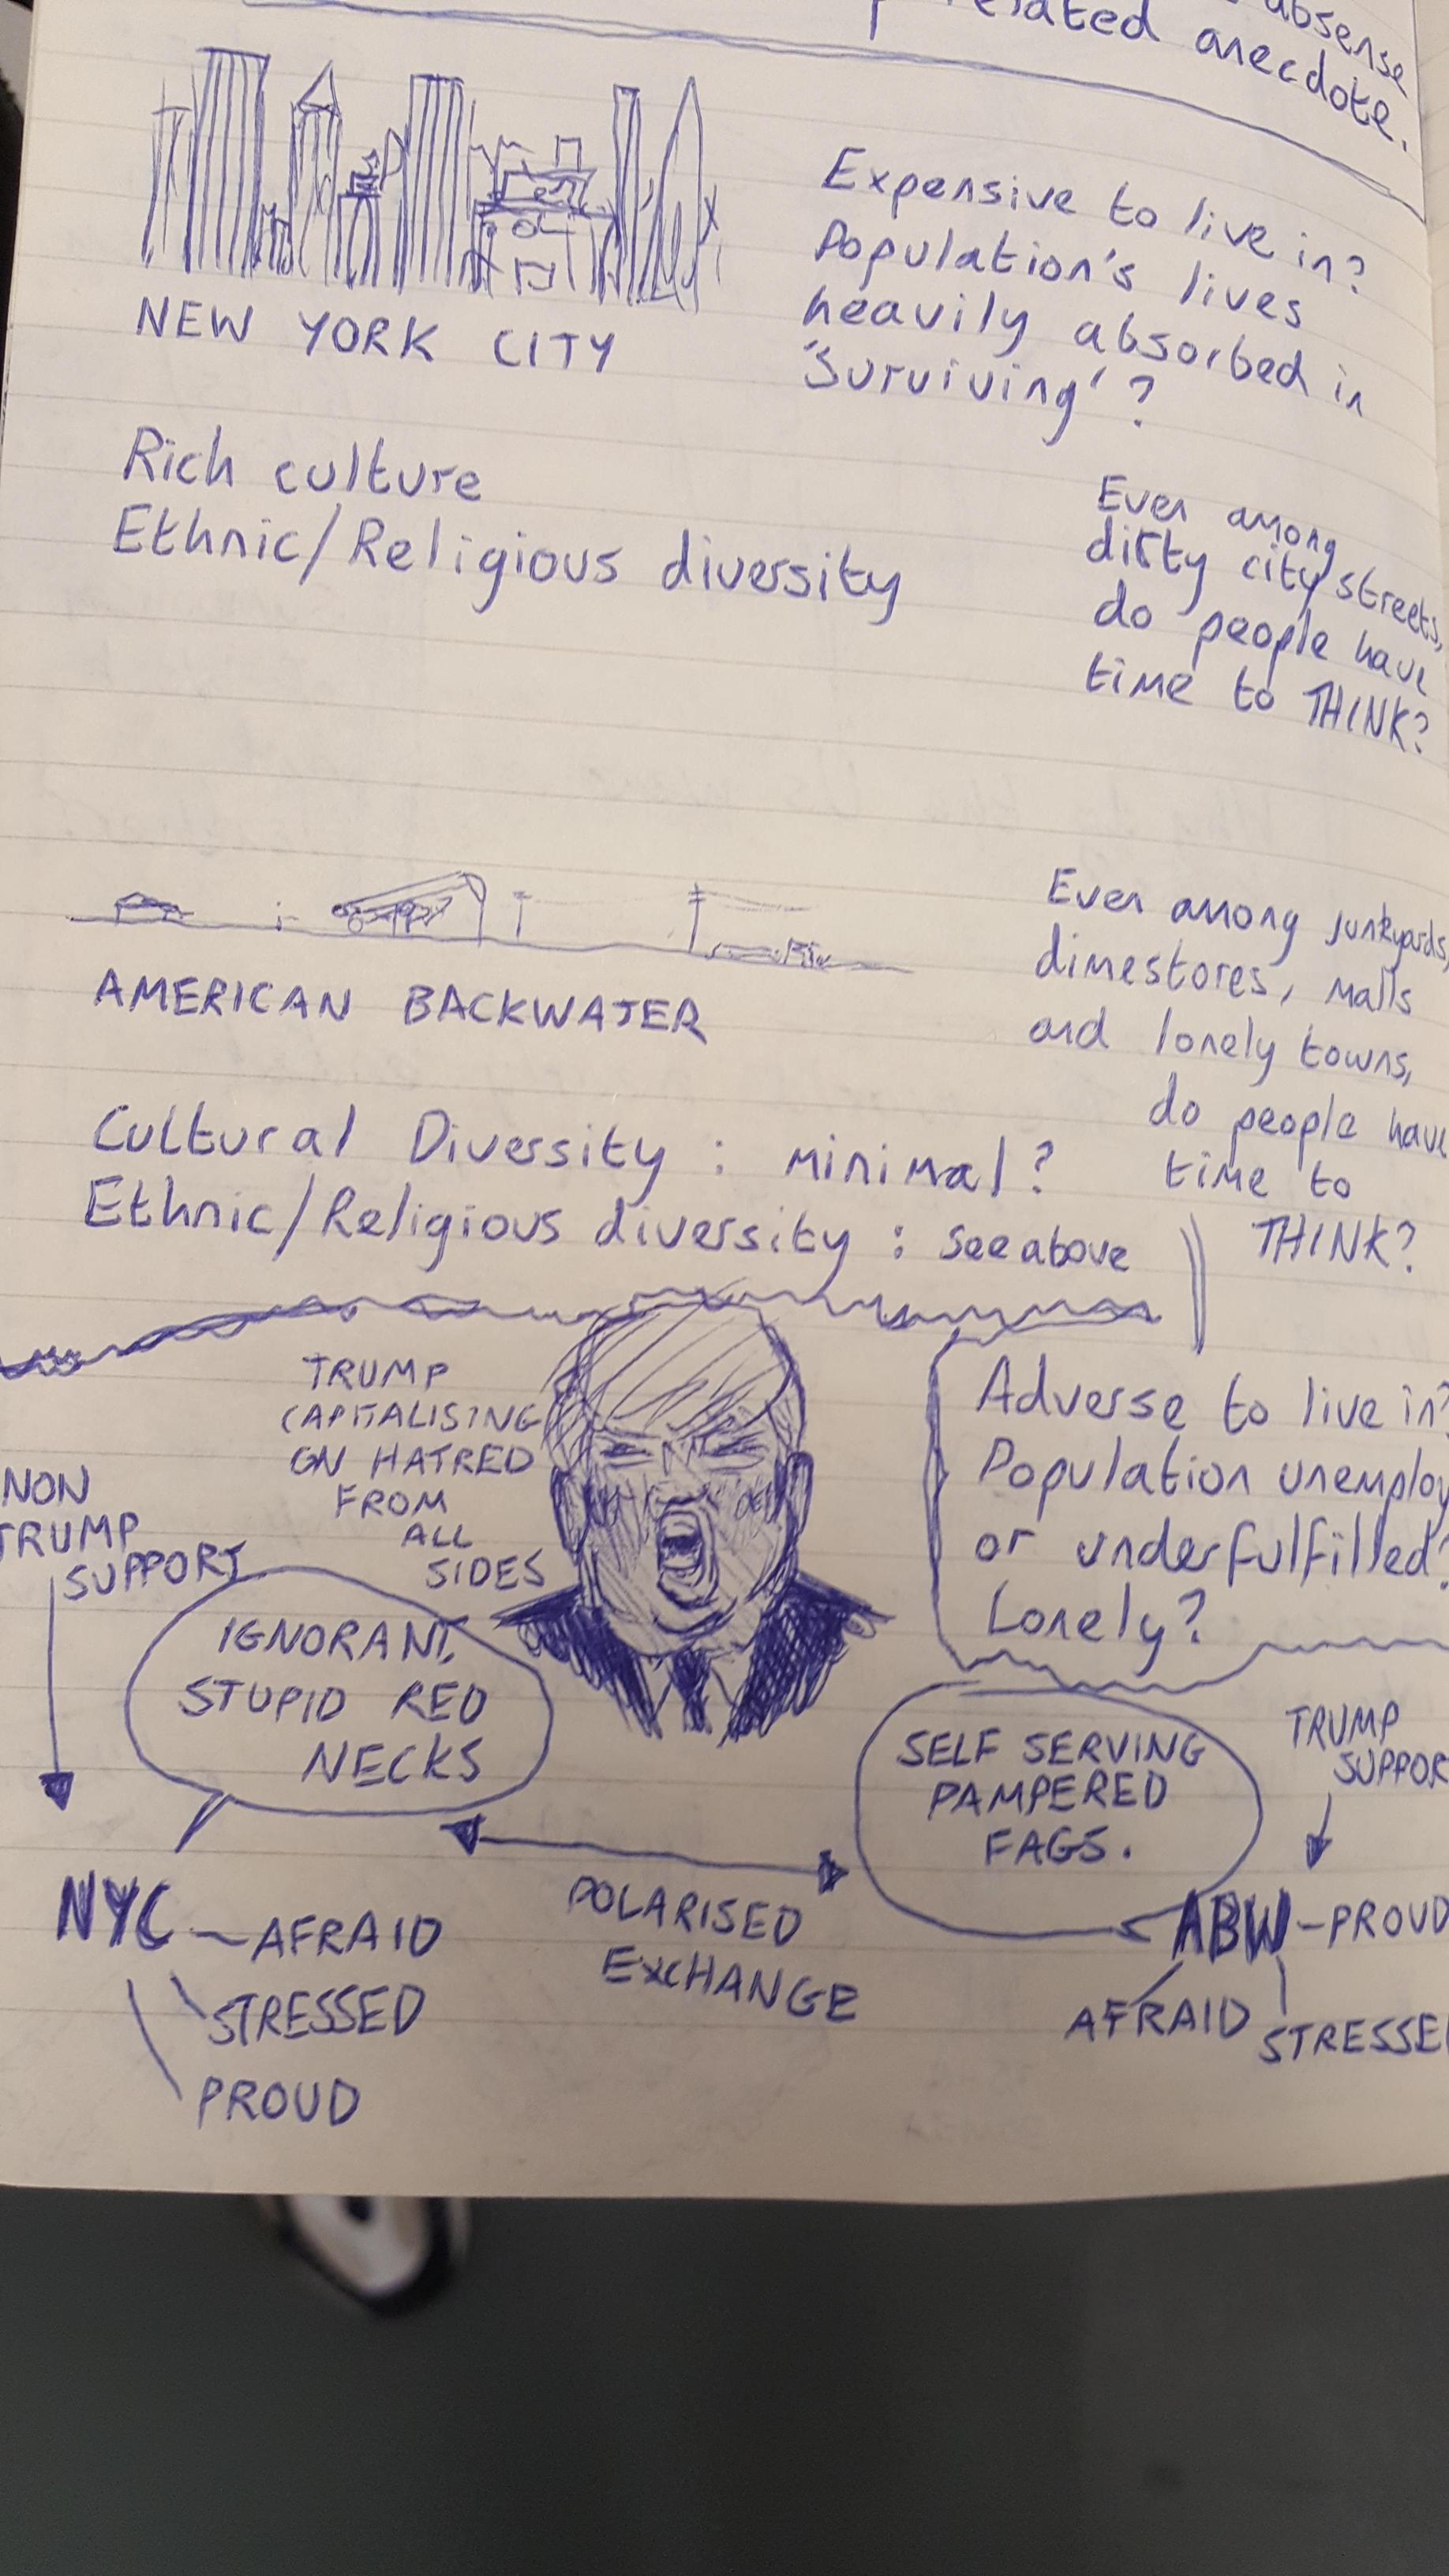 absense
related anecdote.
Expensive to live in?
Population's lives
heavily absorbed in
'Surviving'?
NEW YORK CITY
Rich culture
Ethnic/Religious diversity
Even among
dirty city streets,
do people have
time to THINK?
AMERICAN BACKWATER
Even among junkyards,
dimestores, malls
and lonely towns,
do people have
time to
THINK?
Cultural Diversity : minimal?
Ethnic/Religious diversity : see above
TRUMP
CAPITALISING
ON HATRED
FROM
ALL
SIDES
Adverse to live in?
Population unemploy
or underfulfilled?
Lonely?
NON
TRUMP
SUPPORT
IGNORANT,
STUPID RED
NECKS
SELF SERVING
PAMPERED
FAGS.
TRUMP
SUPPOR
NYC - AFRAID
STRESSED
PROUD
POLARISED
EXCHANGE
ABW - PROUD
AFRAID
STRESSE